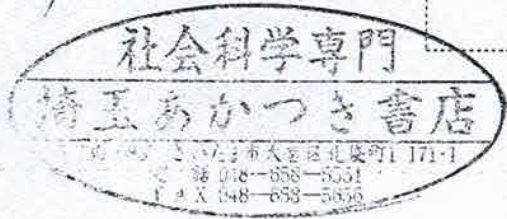 社会科学専門
埼玉あかつき書店
さいたま市大宮区北袋町1 171-1
電話 048-658-5551
FAX 048-653-5656